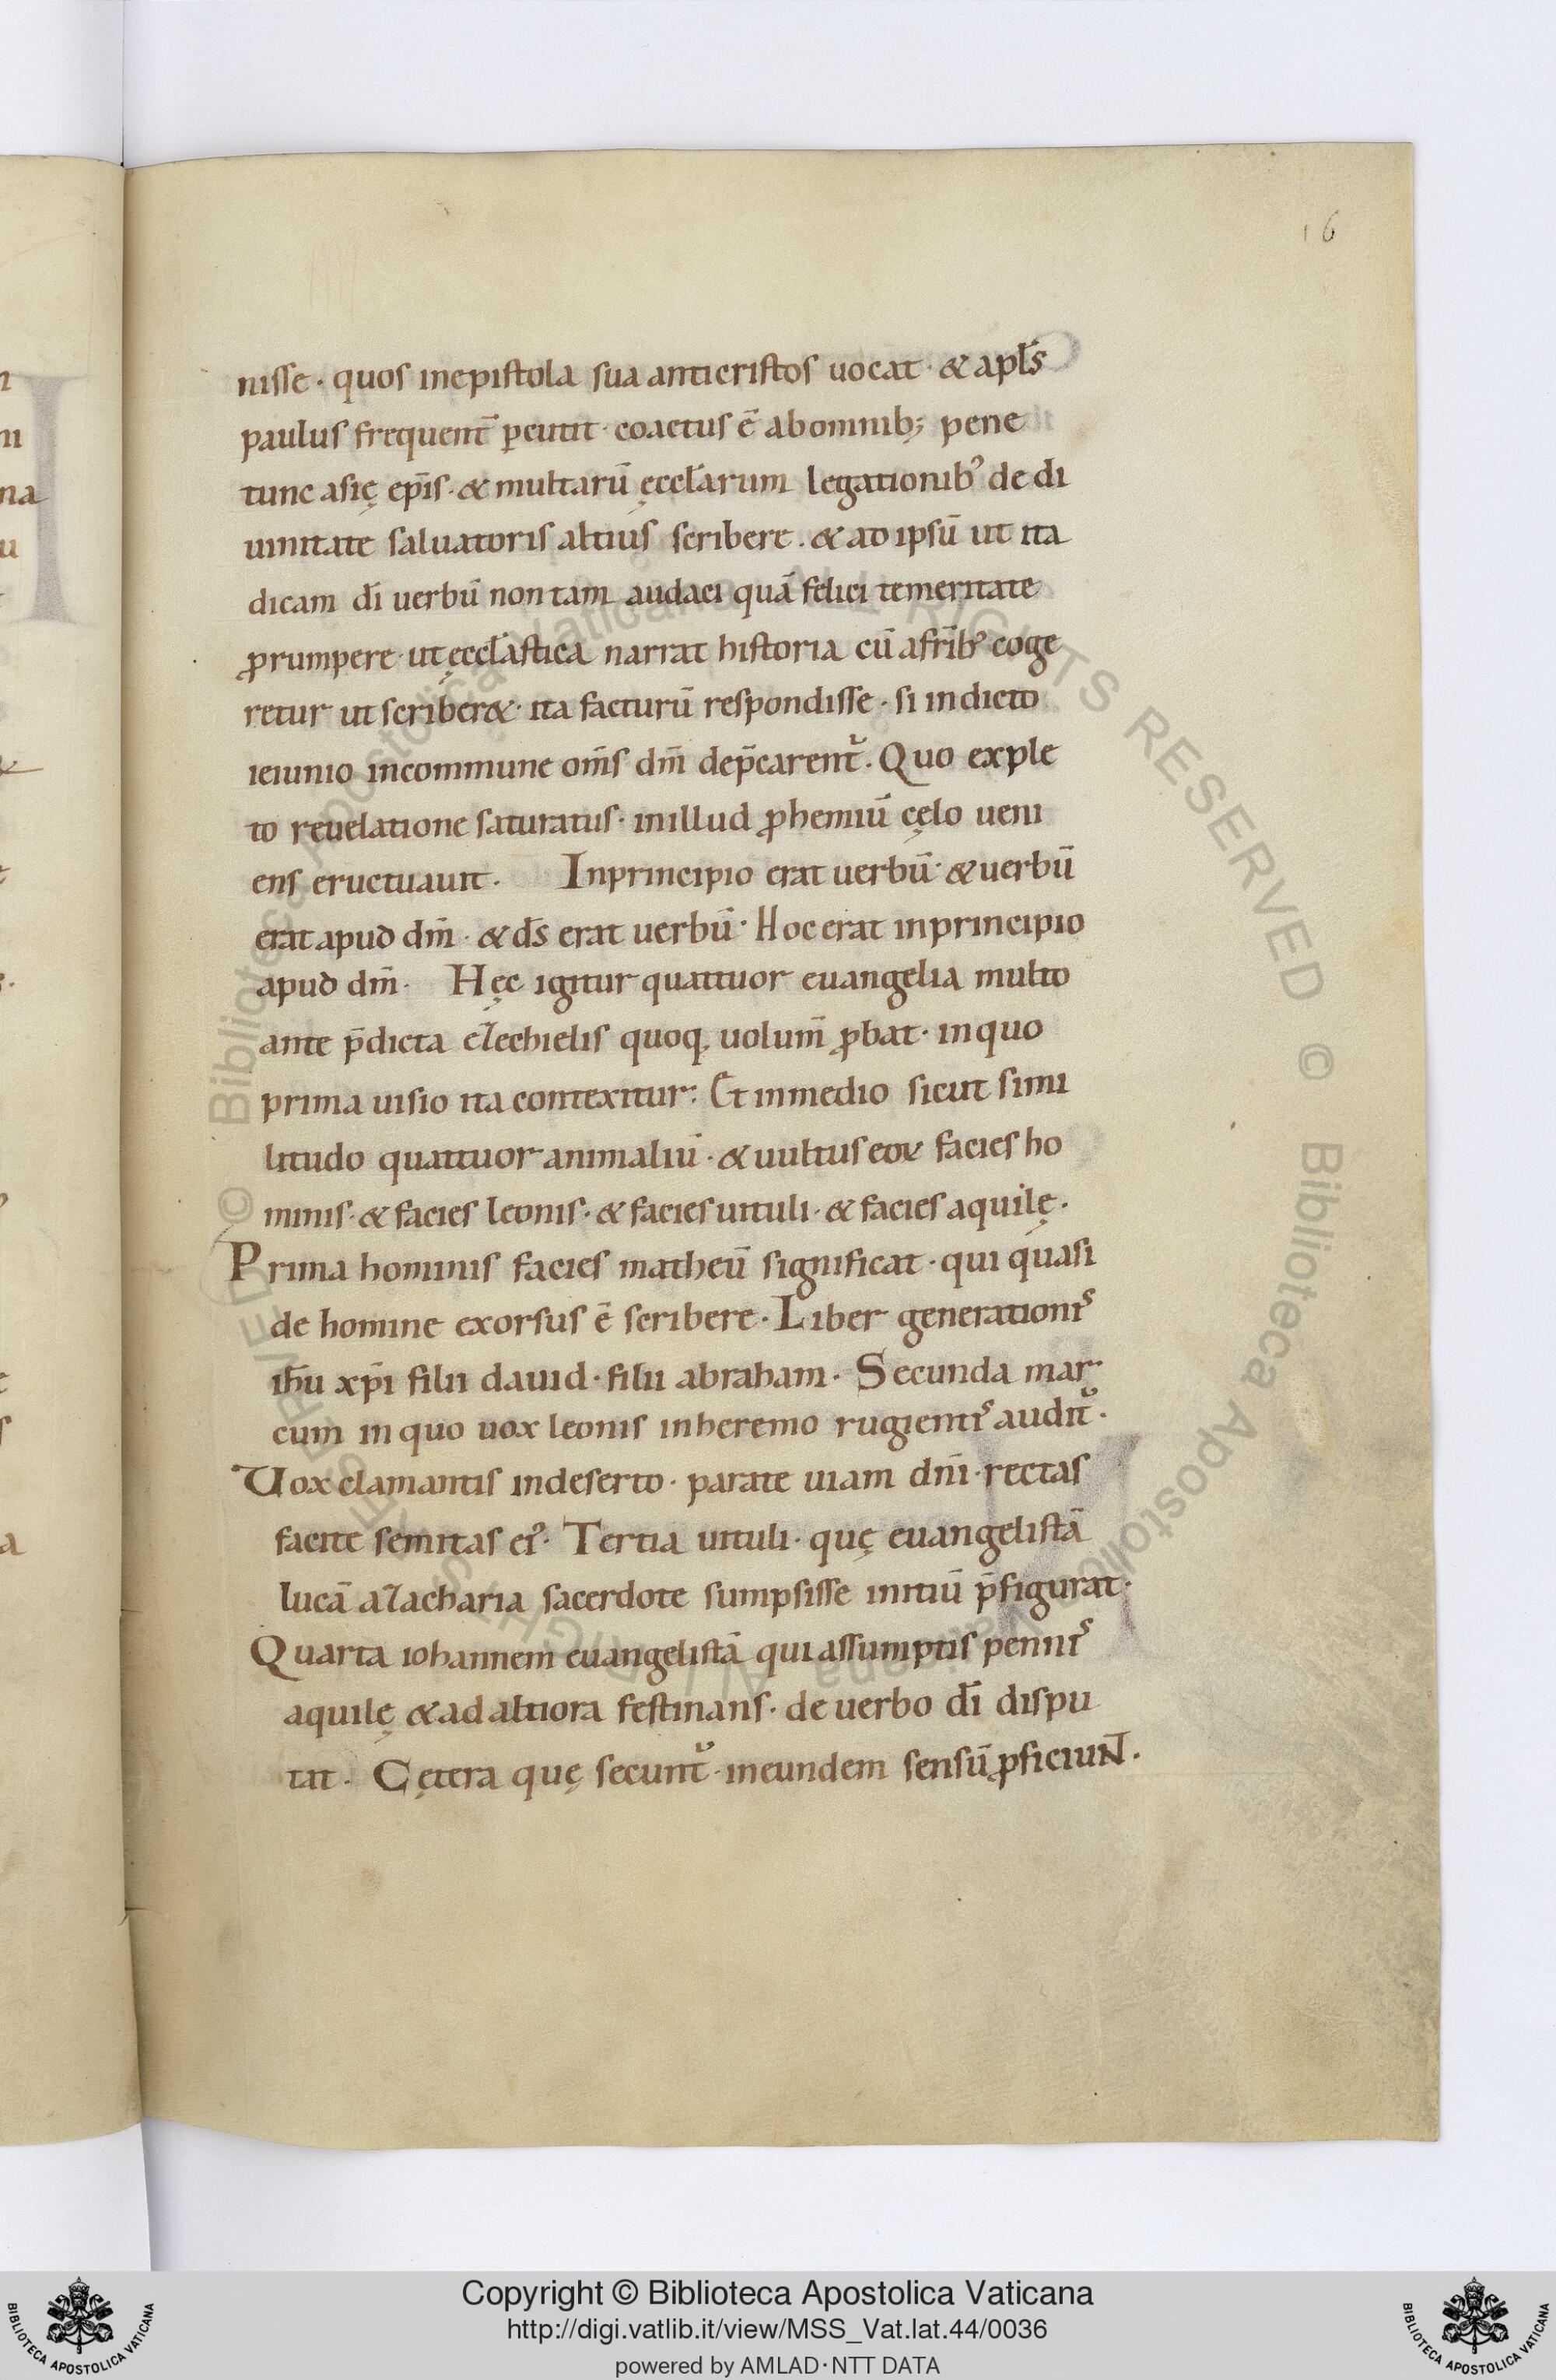 16
nisse · quos inepistola sua anticristos uocat · & apl̄s
paulus frequent̄ ꝑcutit · coactus ē abomnib; pene
tunc asię ep̄is · & multarū ęccl̄arum legationibꝰ de di
uinitate saluatoris altius scribere . & ad ipsū ut ita
dicam dī uerbū non tam audaci quā felici temeritate
ꝓrumpere · ut ęccl̄astica narrat historia cū afrībꝰ coge
retur ut scriber& · ita facturū respondisse · si indicto
ieiunio incommune om̄s dm̄ dep̄carent᷑ . Quo exple
to reuelatione saturatus · inillud ꝓhemiū cęlo ueni
ens eructuauit . Inprincipio erat uerbū · & uerbū
erat apud dm̄ · & ds̄ erat uerbū · Hoc erat inprincipio
apud dm̄ · Hęc igitur quattuor euangelia multo
ante p̄dicta ezechielis quoq. uolum̄ ꝓbat · inquo
prima uisio ita contexitur : Et inmedio sicut simi
litudo quattuor animaliū · & uultus eoꝝ facies ho
minis · & facies leonis · & facies uituli · & facies aquilę .
Prima hominis facies matheū significat · qui quasi
de homine exorsus ē scribere · Liber generationis
ih̄u xp̄i filii dauid · filii abraham · Secunda mar
cum in quo uox leonis inheremo rugientis audit᷑ ·
Uox clamantis indeserto · parate uiam dn̄i · rectas
facite semitas eiꝰ · Tertia uituli · quę euangelistā
lucā azacharia sacerdote sumpsisse initiū p̄figurat ·
Quarta iohannem euangelistā qui assumptis pennis
aquilę & ad altiora festinans · de uerbo dī dispu
tat · Cętera quę secunt᷑ · ineundem sensū ꝓficiun̄t ·
n
m
na
u
Copyright © Biblioteca Apostolica Vaticana
http://digi.vatlib.it/view/MSS_Vat.lat.44/0036
powered by AMLAD·NTT DATA
BIBLIOTECA APOSTOLICA VATICANA
BIBLIOTECA APOSTOLICA VATICANA
© Biblioteca Apostolica Vaticana ALL RIGHTS RESERVED © Biblioteca Apostolica Vaticana ALL RIGHTS RESERVED